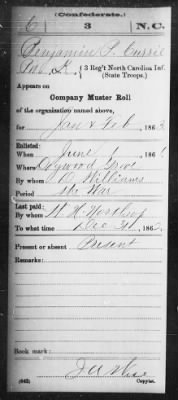 (Confederate.)
C 3 N.C.
Benjamin F. Currie
Co. K., 3 Reg't North Carolina Inf.
(State Troops.)
Appears on
Company Muster Roll
of the organization named above,
for Jan & Feb, 186
Enlisted:
When June 1, 186
Where Grove
By whom Williams
Period the War
Last paid:
By whom W. H. Northrop
To what time Dec 31, 186
Present or absent Present
Remarks:
Book mark:
(642) Copyist.